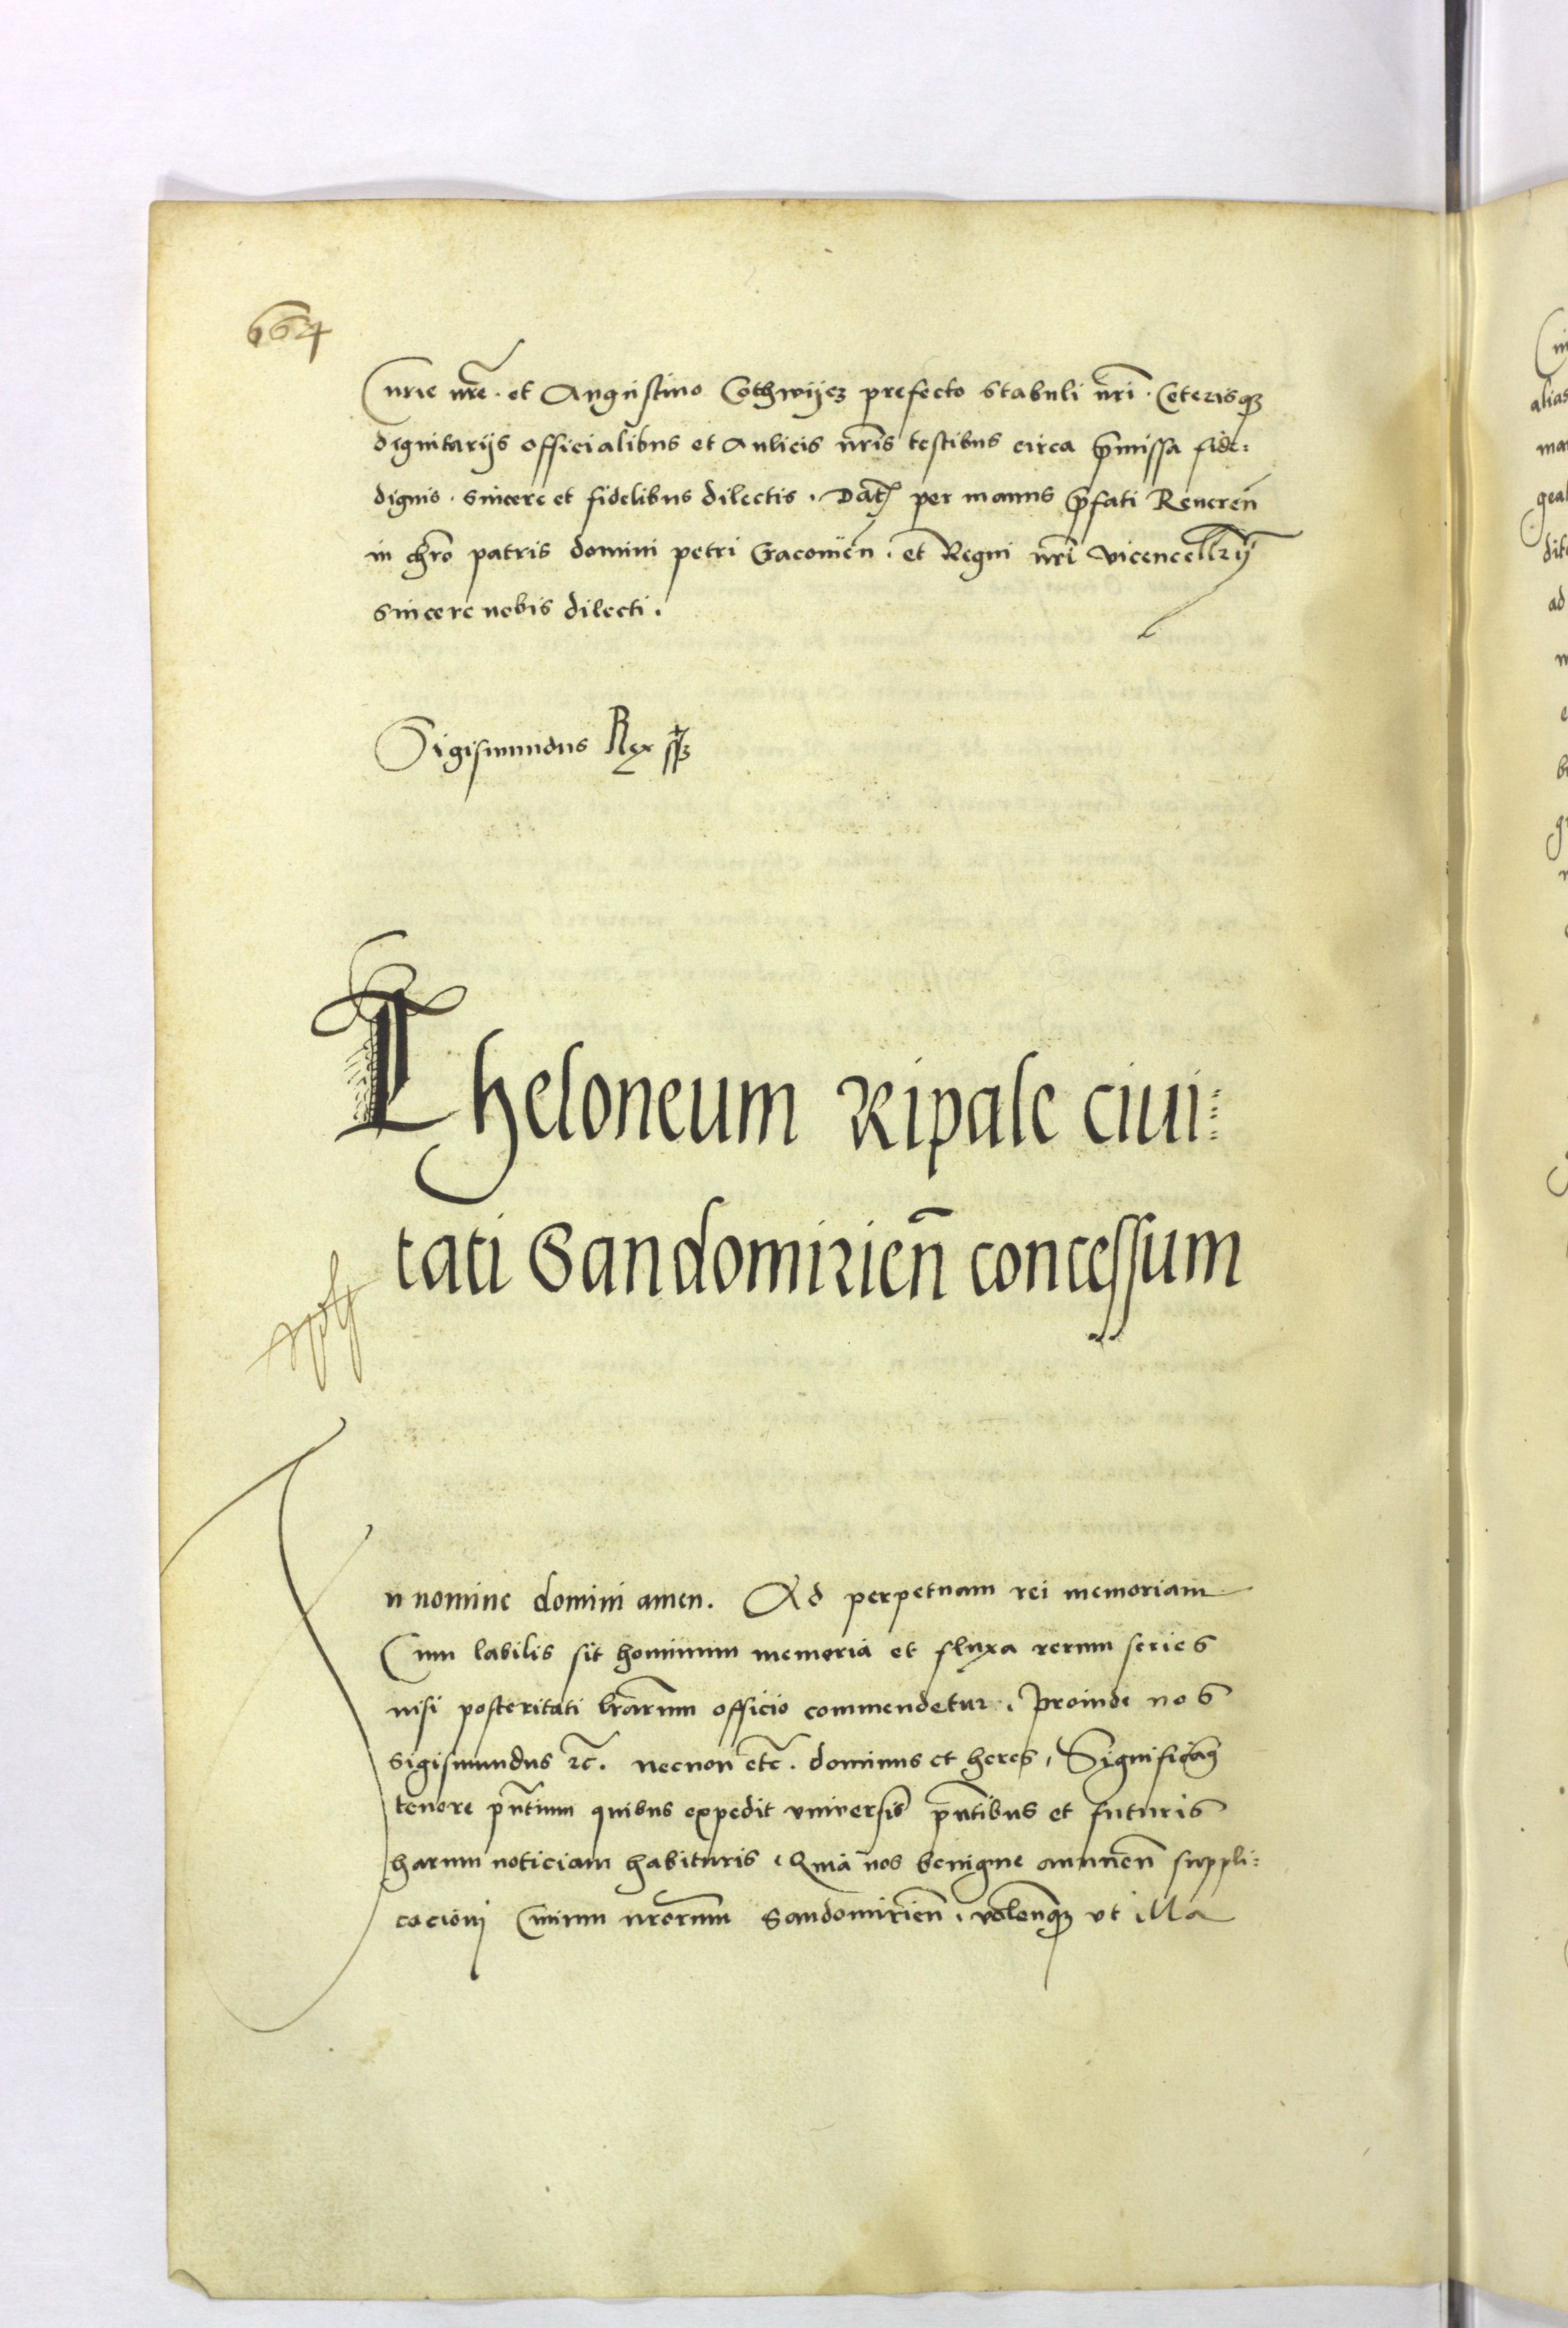 164
Curie nr̃e · et Augustino Cothwijcz prefecto stabuli nr̃i · Ceterisqꝫ
dignitarijs officialibus et Aulicis nr̃is testibus circa p̄missa fide:
dignis · sincere et fidelibus dilectis · Dat̃ per manus p̄fati Reueren̄
in chr̃o patris domini petri Cracouien̄ · et Regni nr̃i vicencellr̃ij
sincere nobis dilecti ·
Sigismundus Rex sſꝫ
Theloneum Ripale ciui:
tati Sandomirien̄ concessum
In nomine domini amen. Ad perpetuam rei memoriam
Cum labilis sit hominum memoria et fluxa rerum series
nisi posteritati lr̃arum officio commendetur · Proinde nos
Sigismundus ꝛc̃. necnon etc̃. dominus et heres, Significam̃
tenore pn̄tium quibus expedit vniversis pn̄tibus et futuris
harum noticiam habituris · Quia nos benigne annuen̄ suppli:
cacioni Ciuium nr̃orum Sandomirien̄ · volen̄qꝫ vt illa